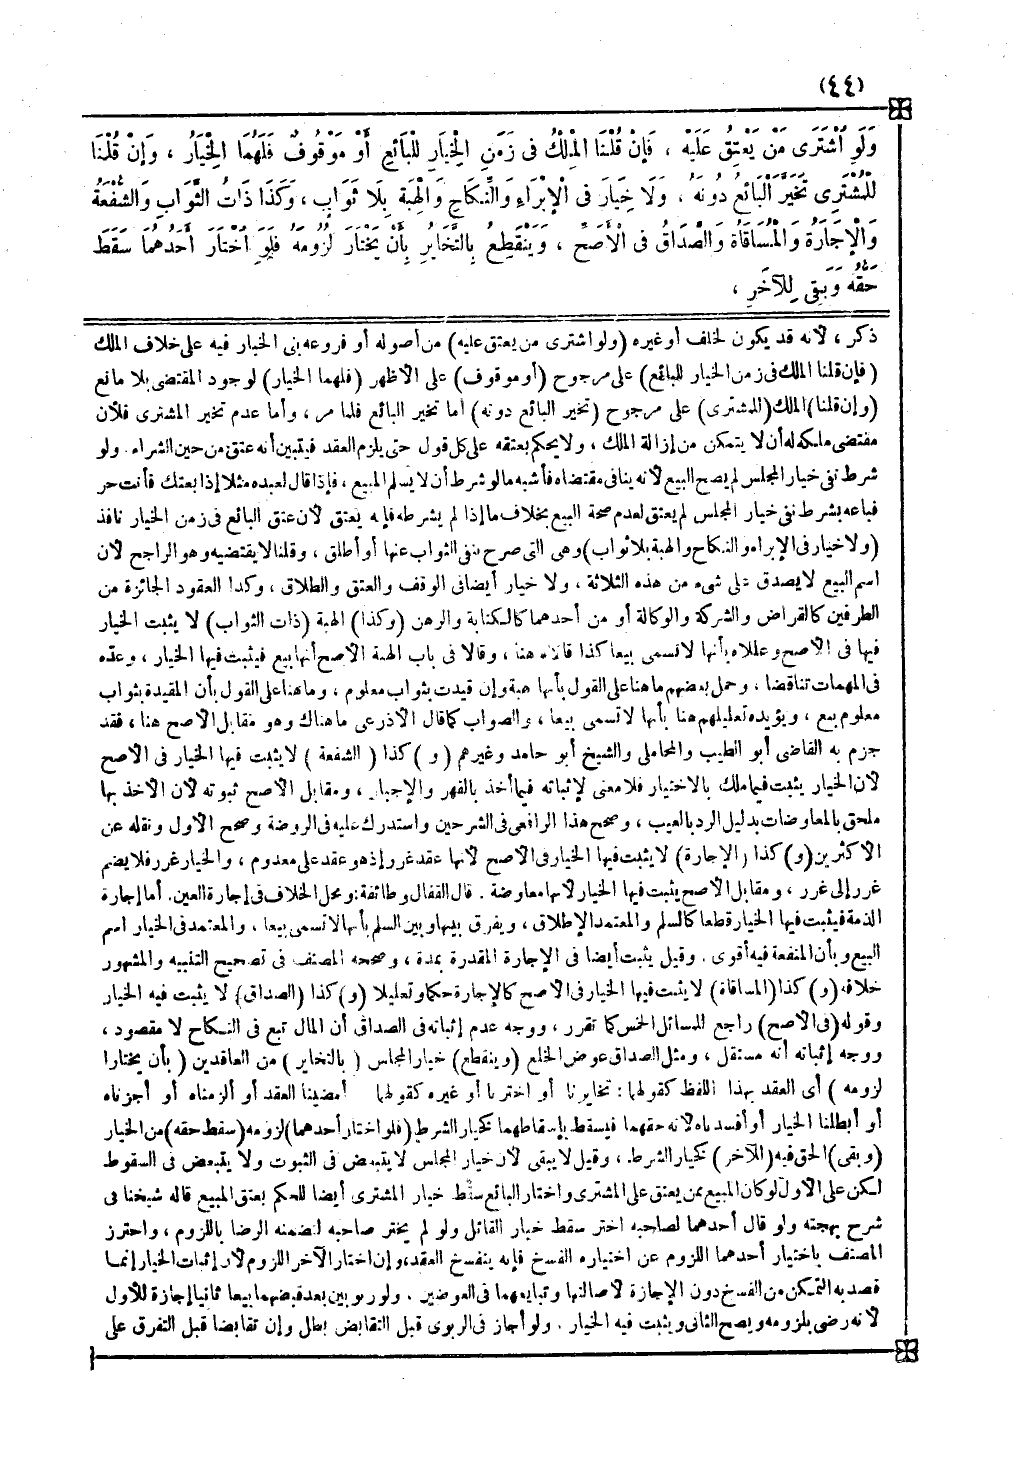 (٤٤)
وَلَوِ اشْتَرَى مَنْ يَعْتِقُ عَلَيْهِ ، فَإِنْ قُلْنَا الْمِلْكُ فِى زَمَنِ الْخِيَارِ لِلْبَائِعِ أَوْ مَوْقُوفٌ فَلَهُمَا الْخِيَارُ ، وَإِنْ قُلْنَا
لِلْمُشْتَرِى تَخَيَّرَ الْبَائِعُ دُونَهُ ، وَلَا خِيَارَ فِى الْإِبْرَاءِ وَالنِّكَاحِ وَالْهِبَةِ بِلَا ثَوَابٍ ، وَكَذَا ذَاتُ الثَّوَابِ وَالشُّفْعَةُ
وَالْإِجَارَةُ وَالْمُسَاقَاةُ وَالصَّدَاقُ فِى الْأَصَحِّ ، وَيَنْقَطِعُ بِالتَّخَايُرِ بِأَنْ يَخْتَارَ لُزُومَهُ فَلَوِ اخْتَارَ أَحَدُهُمَا سَقَطَ
حَقُّهُ وَبَقِىَ لِلْآخَرِ ،
ذكر ، لأنه قد يكون لخلف أو غيره (ولو اشترى من يعتق عليه) من أصوله أو فروعه بنى الخيار فيه على خلاف الملك
(فإن قلنا الملك فى زمن الخيار للبائع) على مرجوح (أو موقوف) على الأظهر (فلهما الخيار) لوجود المقتضى بلا مانع
(وإن قلنا) الملك (للمشترى) على مرجوح (تخير البائع دونه) أما تخير البائع فلما مر ، وأما عدم تخير المشترى فلأن
مقتضى ملكه له أن لا يتمكن من إزالة الملك ، ولا يحكم بعتقه على كل قول حتى يلزم العقد فيتبين أنه عتق من حين الشراء . ولو
شرط نفى خيار المجلس لم يصح البيع لأنه ينافى مقتضاه فأشبه مالو شرط أن لا يسلم المبيع ، فإذا قال لعبده مثلا إذا بعتك فأنت حر
فباعه بشرط نفى خيار المجلس لم يعتق لعدم صحة البيع بخلاف ما إذا لم يشرطه فإنه يعتق لأن عتق البائع فى زمن الخيار نافذ
(ولا خيار فى الإبراء والنكاح والهبة بلا ثواب) وهى التى صرح بنفى الثواب عنها أو أطلق ، وقلنا لا يقتضيه وهو الراجح لأن
اسم البيع لا يصدق على شىء من هذه الثلاثة ، ولا خيار أيضا فى الوقف والعتق والطلاق ، وكذا العقود الجائزة من
الطرفين كالقراض والشركة والوكالة أو من أحدهما كالكتابة والرهن (وكذا) الهبة (ذات الثواب) لا يثبت الخيار
فيها فى الأصح وعللاه بأنها لا تسمى بيعا كذا قالاه هنا ، وقالا فى باب الهبة الأصح أنها بيع فيثبت فيها الخيار ، وعده
فى المهمات تناقضا ، وحمل بعضهم ما هنا على القول بأنها هبة وإن قيدت بثواب معلوم ، وما هنا على القول بأن المقيدة بثواب
معلوم بيع ، ويؤيده تعليلهم هنا بأنها لا تسمى بيعا ، والصواب كما قال الأذرعى ما هناك وهو مقابل الأصح هنا ، فقد
جزم به القاضى أبو الطيب والمحاملى والشيخ أبو حامد وغيرهم (و) كذا (الشفعة) لا يثبت فيها الخيار فى الأصح
لأن الخيار يثبت فيما ملك بالاختيار فلا معنى لإثباته فيما أخذ بالقهر والإجبار ، ومقابل الأصح ثبوته لأن الأخذ بها
ملحق بالمعاوضات بدليل الرد بالعيب ، وصحح هذا الرافعى فى الشرحين واستدرك عليه فى الروضة وصحح الأول ونقله عن
الأكثرين (و) كذا (الإجارة) لا يثبت فيها الخيار فى الأصح لأنها عقد غرر إذ هو عقد على معدوم ، والخيار غرر فلا يضم
غرر إلى غرر ، ومقابل الأصح يثبت فيها الخيار لأنها معاوضة . قال القفال وطائفة : ومحل الخلاف فى إجارة العين . أما إجارة
الذمة فيثبت فيها الخيار قطعا كالسلم والمعتمد الإطلاق ، ويفرق بينها وبين السلم بأنها لا تسمى بيعا ، والمعتمد فى الخيار اسم
البيع وبأن المنفعة فيه أقوى . وقيل يثبت أيضا فى الإجارة المقدرة بمدة ، وصححه المصنف فى تصحيح التنبيه والمشهور
خلافه (و) كذا (المساقاة) لا يثبت فيها الخيار فى الأصح كالإجارة حكما وتعليلا (و) كذا (الصداق) لا يثبت فيه الخيار
وقوله (فى الأصح) راجع للمسائل الخمس كما تقرر ، ووجه عدم إثباته فى الصداق أن المال تبع فى النكاح لا مقصود ،
ووجه إثباته أنه مستقل ، ومثل الصداق عوض الخلع (وينقطع) خيار المجلس (بالتخاير) من العاقدين (بأن يختارا
لزومه) أى العقد بهذا اللفظ كقولهما : تخايرنا أو اخترنا أو غيره كقولهما أمضينا العقد أو ألزمناه أو أجزناه
أو أبطلنا الخيار أو أفسدناه لأنه حقهما فيسقط بإسقاطهما كخيار الشرط (فلو اختار أحدهما) لزومه (سقط حقه) من الخيار
(وبقى) الحق فيه (للآخر) كخيار الشرط ، وقيل لا يبقى لأن خيار المجلس لا يتبعض فى الثبوت ولا يتبعض فى السقوط
لكن على الأول لو كان المبيع ممن يعتق على المشترى واختار البائع سقط خيار المشترى أيضا للحكم بعتق المبيع قاله شيخنا فى
شرح بهجته ولو قال أحدهما لصاحبه اختر سقط خيار القائل ولو لم يختر صاحبه لتضمنه الرضا باللزوم ، واحترز
المصنف باختيار أحدهما اللزوم عن اختياره الفسخ فإنه ينفسخ العقد، وإن اختار الآخر اللزوم لأن إثبات الخيار إنما
قصد به التمكن من الفسخ دون الإجازة لأصالتها وتبايعهما فى العوضين . ولو ربويين بعد قبضهما بيعا ثانيا إجازة للأول
لأنه رضى بلزومه ويصح الثانى ويثبت فيه الخيار . ولو أجاز فى الربوى قبل التقابض بطل وإن تقابضا قبل التفرق على